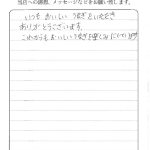 当店への感想、メッセージなどをお願い致します。
いつも おいしい うなぎ をいただき
ありがとうございます。
これからも おいしい うなぎを楽しみにしています